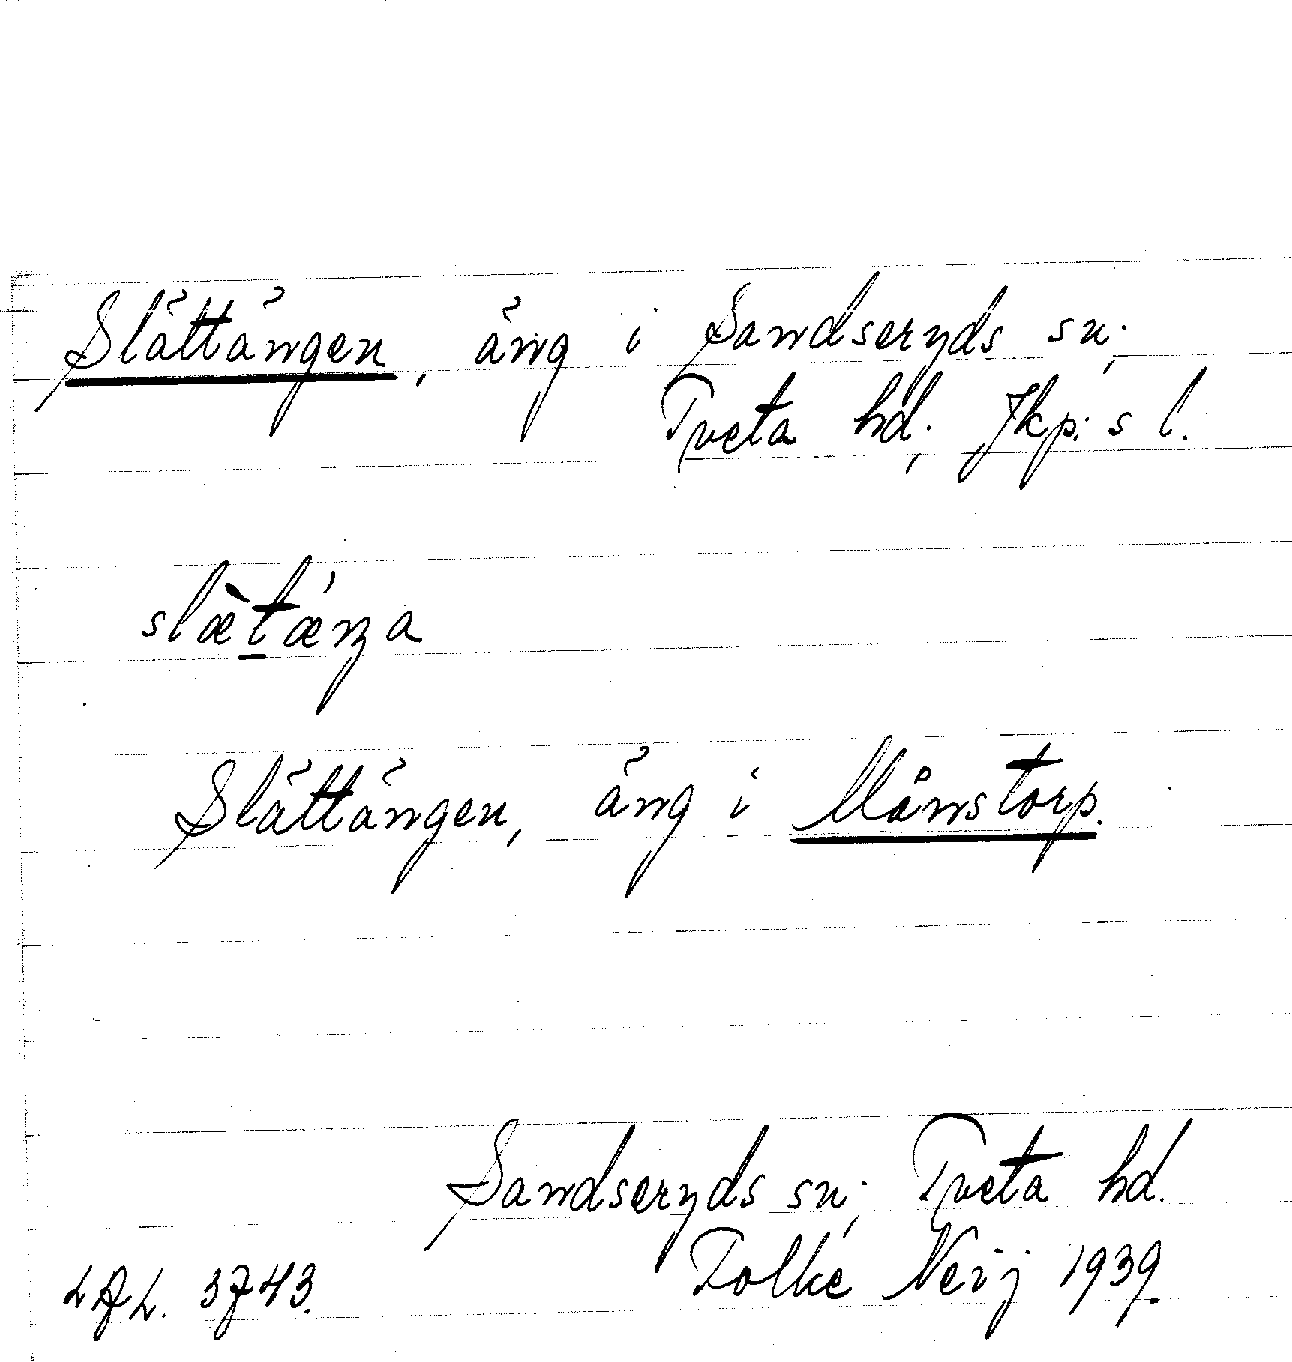 Slättängen, äng i Sandseryds sn;
Tveta hd; Jkp:s l.
slæ̀t̲ǽŋa
Slättängen, äng i Månstorp.
Sandseryds sn; Tveta hd.
Folke Neij 1939.
LAL. 3743.